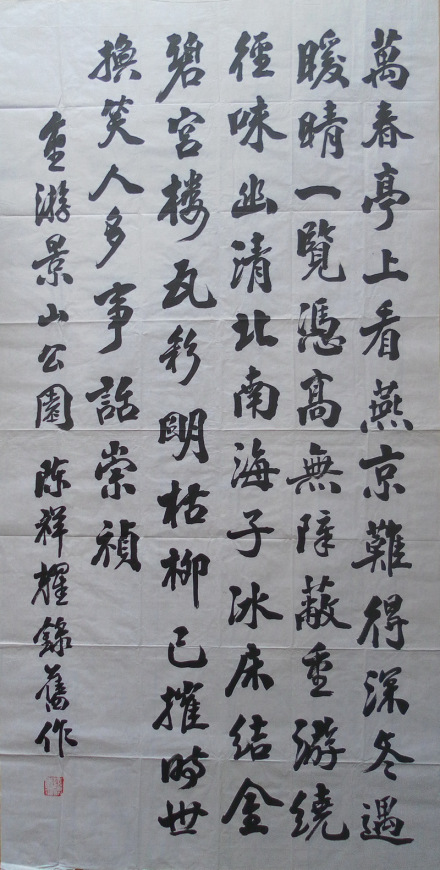 萬春亭上看燕京難得深冬遇
暖晴一覽憑高無障蔽重游繞
徑味幽清北南海子冰床結金
碧宮樓瓦彩明枯柳已摧時世
換笑人多事話崇禎
重游景山公園 陈祥耀錄舊作